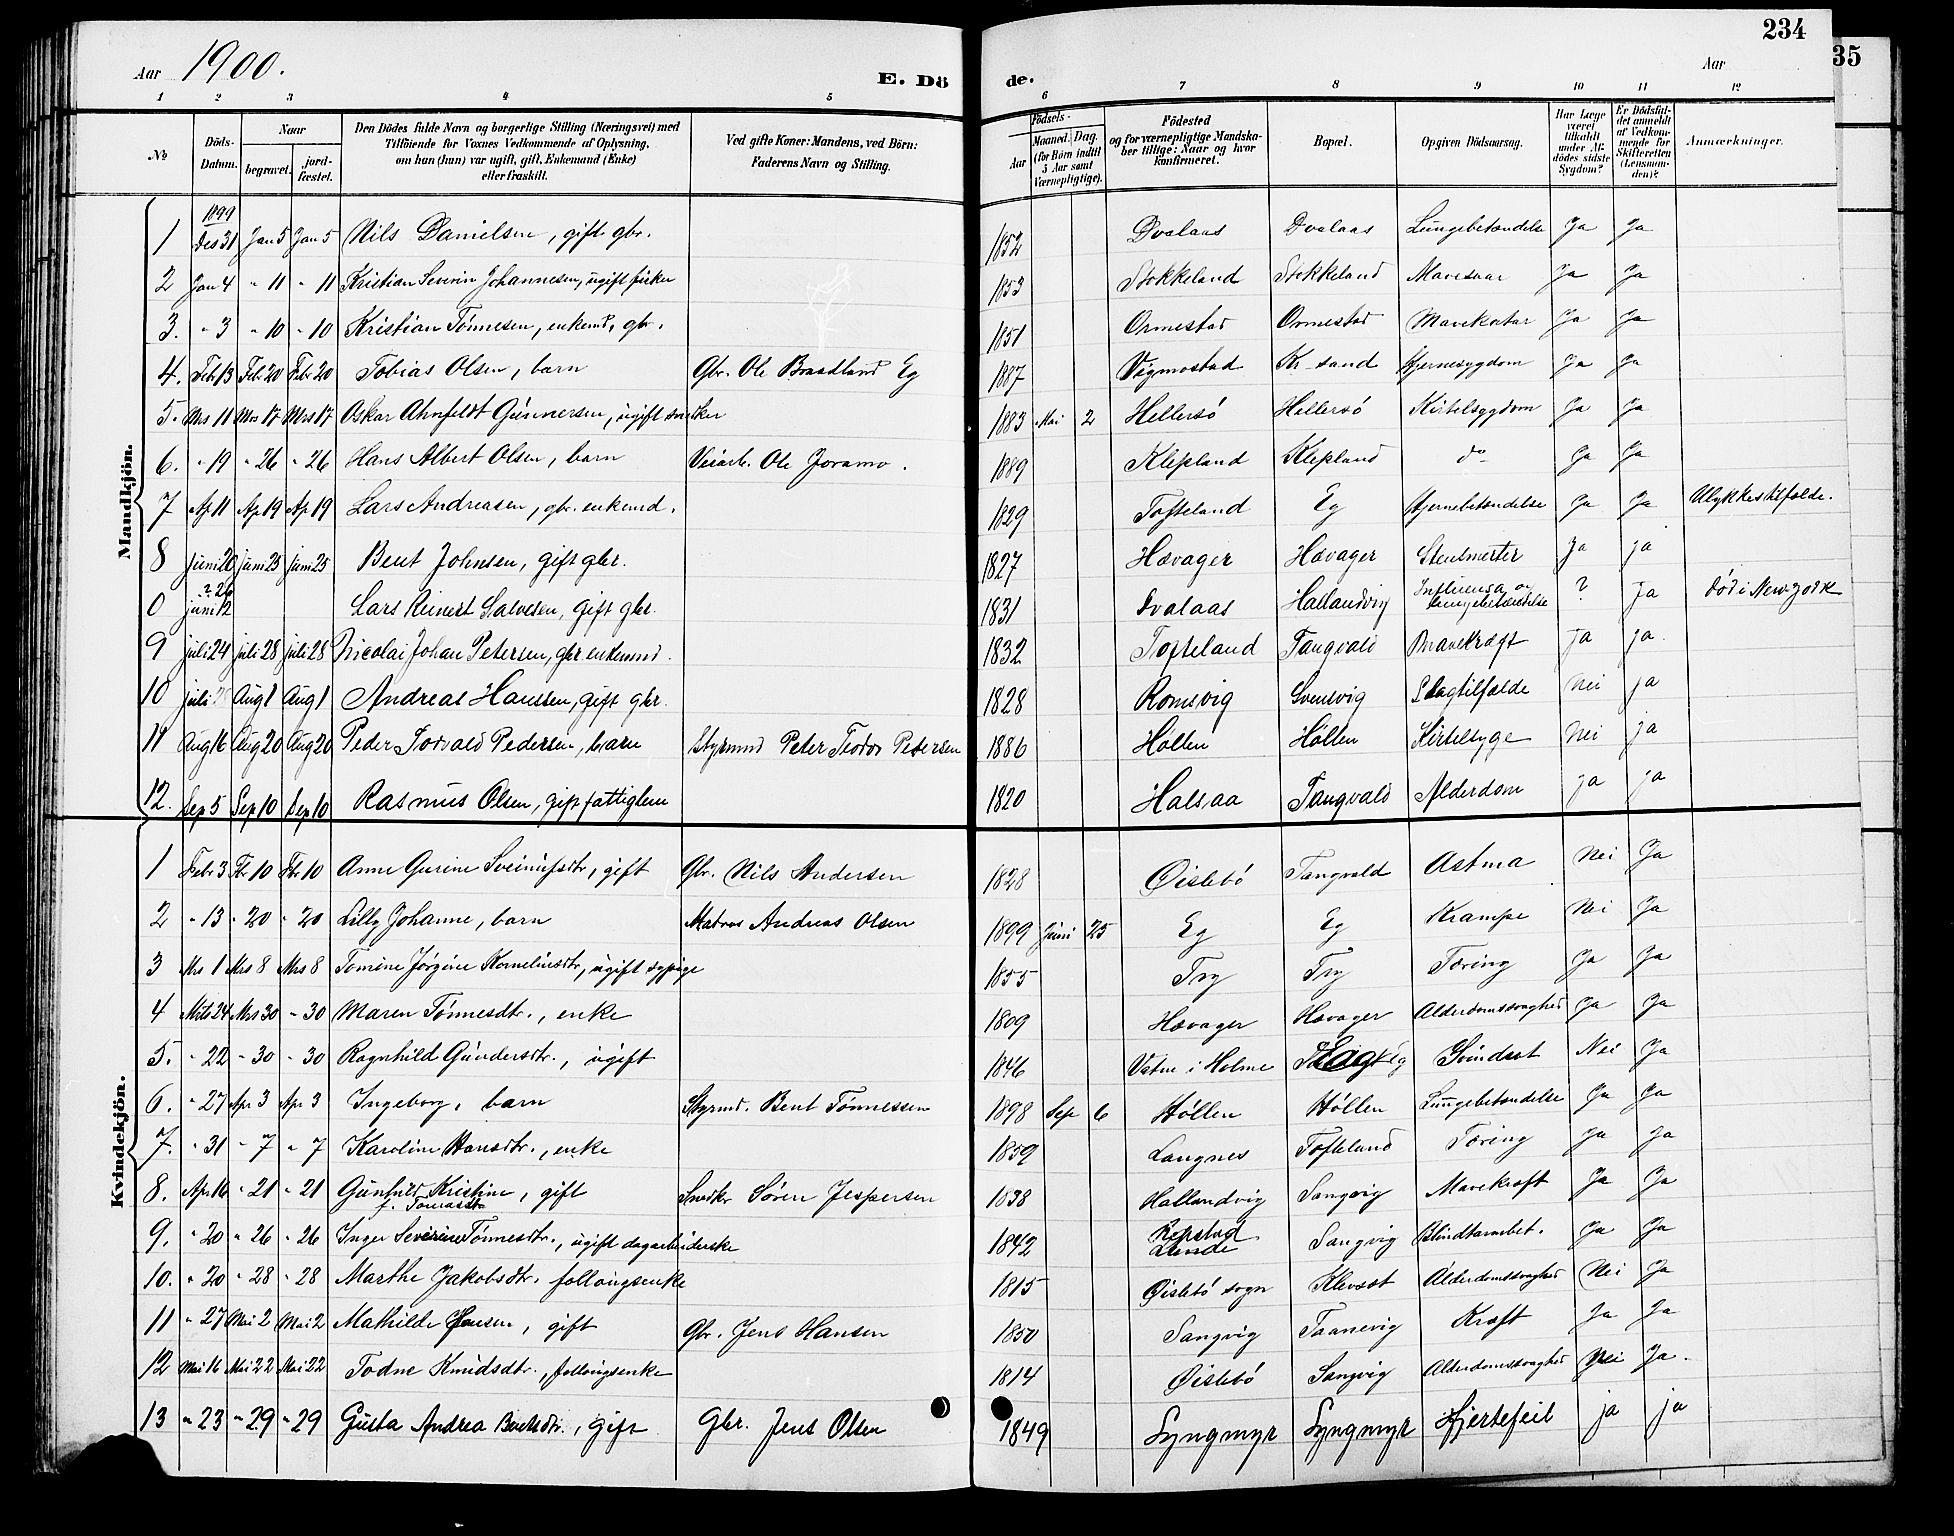 234
35
Aar 1900.
E. Döde.
Aar
1 2 3 4 5 6 7 8 9 10 11 12
No
Döds-Datum.
Naar
begravet.
jord-fæstet.
Den Dödes fulde Navn og borgerlige Stilling (Næringsvei) med
Tilföiende for Voxnes Vedkommende af Oplysning,
om han (hun) var ugift, gift, Enkemand (Enke)
eller fraskilt.
Ved gifte Koner: Mandens, ved Börn:
Faderens Navn og Stilling.
Födsels-
Aar
Maaned. Dag.
(for Börn indtil
5 Aar samt
Værnepligtige).
Födested
og for værnepligtige Mandska-
ber tillige: Naar og hvor
konfirmeret.
Bopæl.
Opgiven Dödsaarsag.
Har Læge
været
tilkaldt
under Af-
dödes sidste
Sygdom?
Er Dödsfal-
det anmeldt
af Vedkom-
mende for
Skifteretten
(Lensman-
den)?
Anmærkninger.
Mandkjön.
1899
1 Des 31 Jan 5 Jan 5 Nils Danielsen, gift gbr. 1852 Dvalaas Dvalaas Lungebetændelse Ja Ja
2 Jan 4 " 11 " 11 Kristian Severin Johannesen, ugift fisker 1853 Stokkeland Stokkeland Mavesaar Ja Ja
3. " 3 " 10 " 10 Kristian Tönnesen, enkemd, gbr. 1851 Ormestad Ormestad Mavekatar Ja Ja
4. Febr 13 Febr 20 Febr 20 Tobias Olsen, barn Gbr. Ole Braadland Eg 1887 Vigmostad Kr-sand Hjernesygdom Ja Ja
5. Mrs 11 Mrs 17 Mrs 17 Oskar Ahnfeldt Gunnersen, ugift snekker 1883 Mai 2 Hellersö Hellersö Kirtelsygdom Ja Ja
6. " 19 " 26 " 26 Hans Albert Olsen, barn Veiarb. Ole Joramo. 1889 Klepland Klepland do Ja Ja
7 Ap 11 Ap 19 Ap 19 Lars Andreasen, gbr. enkemd. 1829 Tofteland Eg Hjernebetændelse Ja Ja Ulykkestilfælde.
8 Juni 20 Juni 25 Juni 25 Bent Johnsen, gift gbr. 1827 Hævager Hævager Stensmerter Ja ja
? 26
0 juni 12 Lars Reinert Salvesen, gift gbr. 1831 Dvalaas Hallandvig Influensa og lungebetændelse ? ja död i New york
9 juli 24 juli 28 juli 28 Nicolai Johan Petersen, gbr enkemnd. 1832 Tofteland Tangvald Mavekræft ja ja.
10 juli Aug 1 Aug 1 Andreas Hanssen, gift gbr. 1828 Romsvig Svensvig Slagtilfælde Nei ja
11 Aug 16 Aug 20 Aug 20 Peder Torvald Pedersen, barn Styrmnd Peter Teodor Petersen 1886 Höllen Höllen Kirtelsyge Nei ja
12. Sep 5 Sep 10 Sep 10 Rasmus Olsen, gift fattiglem 1820 Halsaa Tangvald Alderdom ja ja
Kvindekjön.
1 Febr 3 Fbr 10 Fbr 10 Anne Gurine Sveinufsdtr, gift Gbr. Nils Andersen 1828 Öislebö Tangvald Astma Nei Ja
2 " 13 " 20 " 20 Lilly Johanne, barn Matros Andreas Olsen 1899 Juni 25 Eg Eg Krampe Nei Ja
3 Mrs 1 Mrs 8 Mrs 8 Tomine Jörgine Korneliusdtr, ugift sypige 1855 Try Try Tæring Ja Ja
4 Mrts 24 Mrs 30 " 30 Maren Tönnesdtr., enke 1809 Hævager Hævager Alderdomssvaghed Ja Ja
5. " 22 " 30 " 30 Ragnhild Gundersdtr., ugift 1846 Vatne i Holme Svindsot Nei Ja
6. " 27 Apr 3 Apr 3 Ingeborg, barn Styrmd. Bent Tönnessen 1898 Sep 6 Höllen Höllen Lungebetændelse Ja Ja
7. " 31 " 7 " 7 Karoline Hansdtr., enke 1859 Langnes Tofteland Tæring Ja Ja
8. Apr 16 " 21 " 21 Gunhild Kristine, gift Snedkr Sören Jespersen 1838 Hallandvig Sangvig Mavekræft Ja Ja
f. Tomasdtr
9. " 20 " 26 " 26 Inger Severine Tönnesdtr., ugift dagarbeiderske 1842 Repstad Lunde Sangvig Blindtarmbet. Ja Ja
10. " 20 " 28 " 28 Marthe Jakobsdtr. follougsenke 1815 Öislebö sogn Klevset Alderdomssvaghed Nei Ja
11 " 27 Mai 2 Mai 2 Mathilde Hansen, gift Gbr. Jens Hansen 1850 Sangvig Taanevig Kræft Ja Ja
12 Mai 16 Mai 22 Mai 22 Todne Knudsdtr., follougsenke 1814 Öislebö Sangvig Alderdomssvaghed Nei Ja.
13 " 23 " 29 " 29 Gusta Andrea Bentsdtr., gift Gbr. Jens Olsen 1849 Lyngmyr Lyngmyr Hjertefeil ja ja